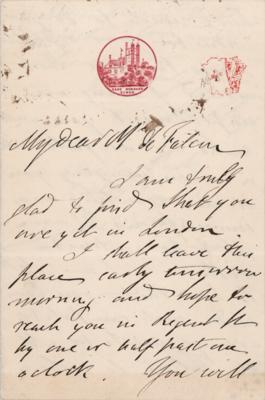 My dear M
I am truly
glad to find that you
are yet in London.
I shall leave this
place early tomorrow
morning and hope to
reach you in Regent St
by one or half past one
oclock. You will